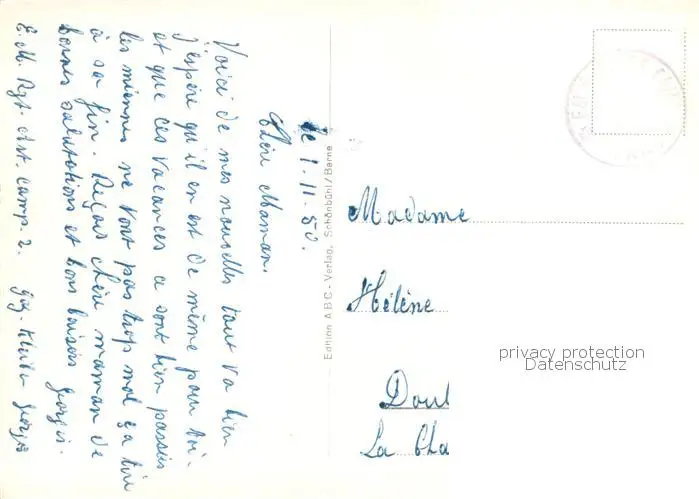 le 1. 11. 50.
Chère Maman.
Voici de mes nouvelles tout va bien
j'espère qu'il en est de même pour toi.
et que ces vacances ce sont bien passées
les miennes ne vont pas trop mal ça tire
à sa fin. Reçois chère maman de
bonnes salutations et bons baisers Georges.
E. M. Rgt. Art. camp. 2.
Edition ABC-Verlag, Schönbühl/Berne
Madame
Hélène
La Cha
privacy protection
Datenschutz